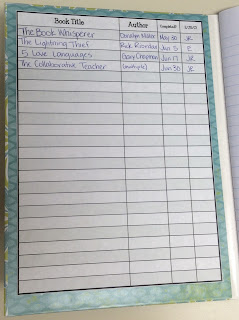 Book Title Author Completed?
The Book Whisperer Donalyn Miller May 30 JR
The Lightning Thief Rick Riordan Jun 5 R
5 Love Languages Gary Chapman Jun 17 JR
The Collaborative Teacher (multiple) Jun 30 JR